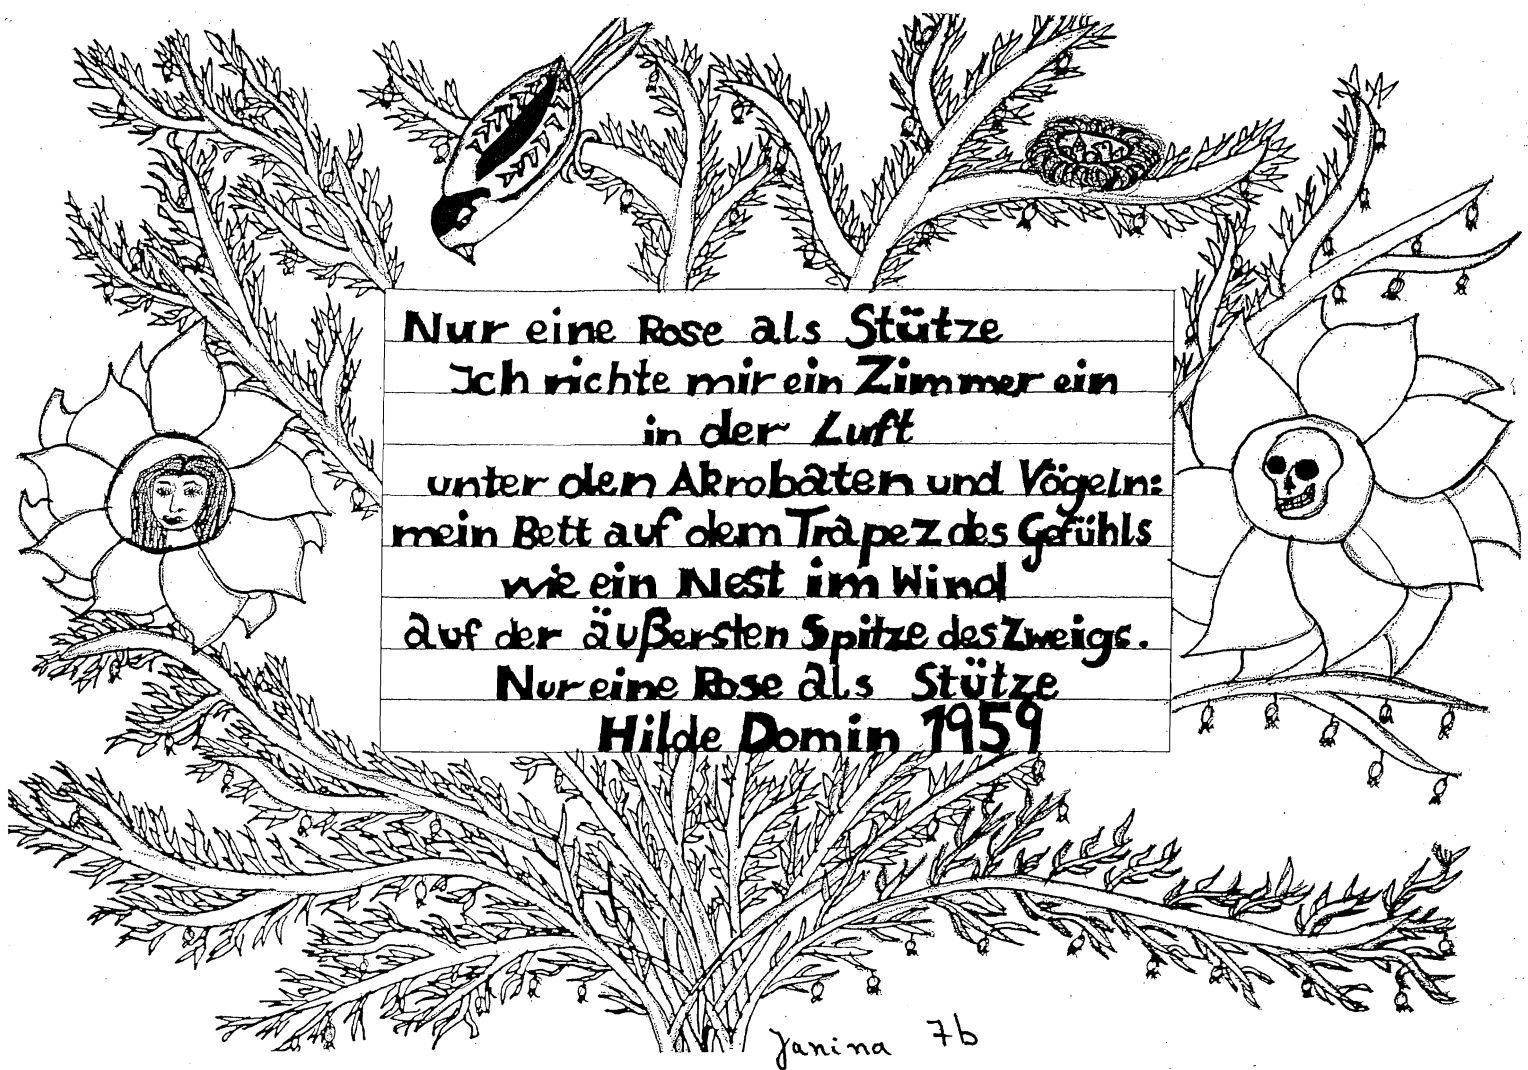 Nur eine Rose als Stütze
Ich richte mir ein Zimmer ein
in der Luft
unter den Akrobaten und Vögeln:
mein Bett auf dem Trapez des Gefühls
wie ein Nest im Wind
auf der äußersten Spitze des Zweigs.
Nur eine Rose als Stütze
Hilde Domin 1959
Janina 7b